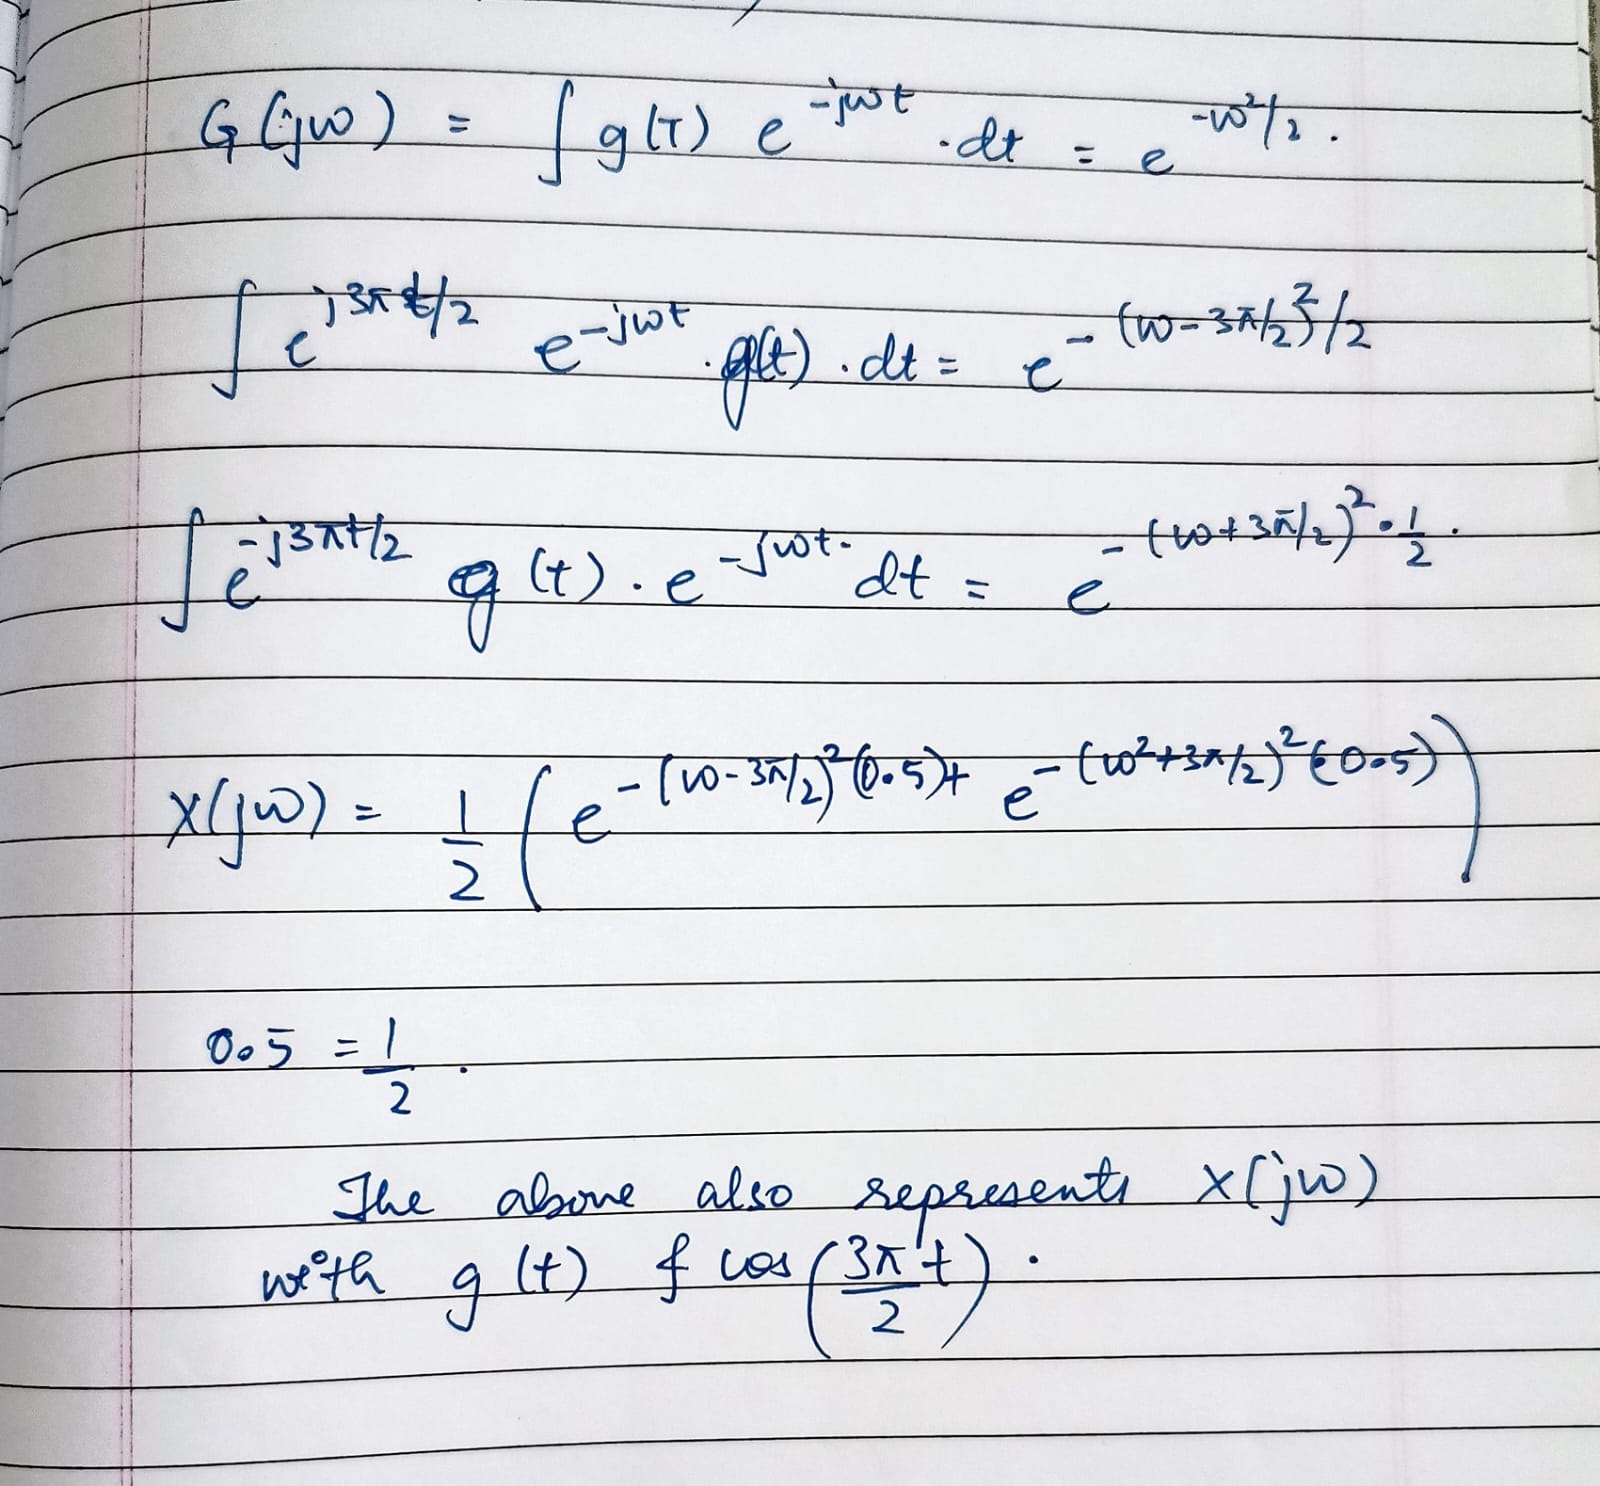 G(jω) = ∫ g(T) e^{-jωt} . dt = e^{-ω²/2} .
∫ e^{j3πt/2} e^{-jωt} . g(t) . dt = e^{-(ω-3π/2)²/2}
∫ e^{-j3πt/2} g(t) . e^{-jωt.} dt = e^{-(ω+3π/2)² • 1/2} .
X(jω) = 1/2 ( e^{-(ω-3π/2)²(0.5)} + e^{-(ω²+3π/2)²(0.5)} )
0.5 = 1/2 .
The above also represents X(jω)
with g(t) & cos(3πt/2) .